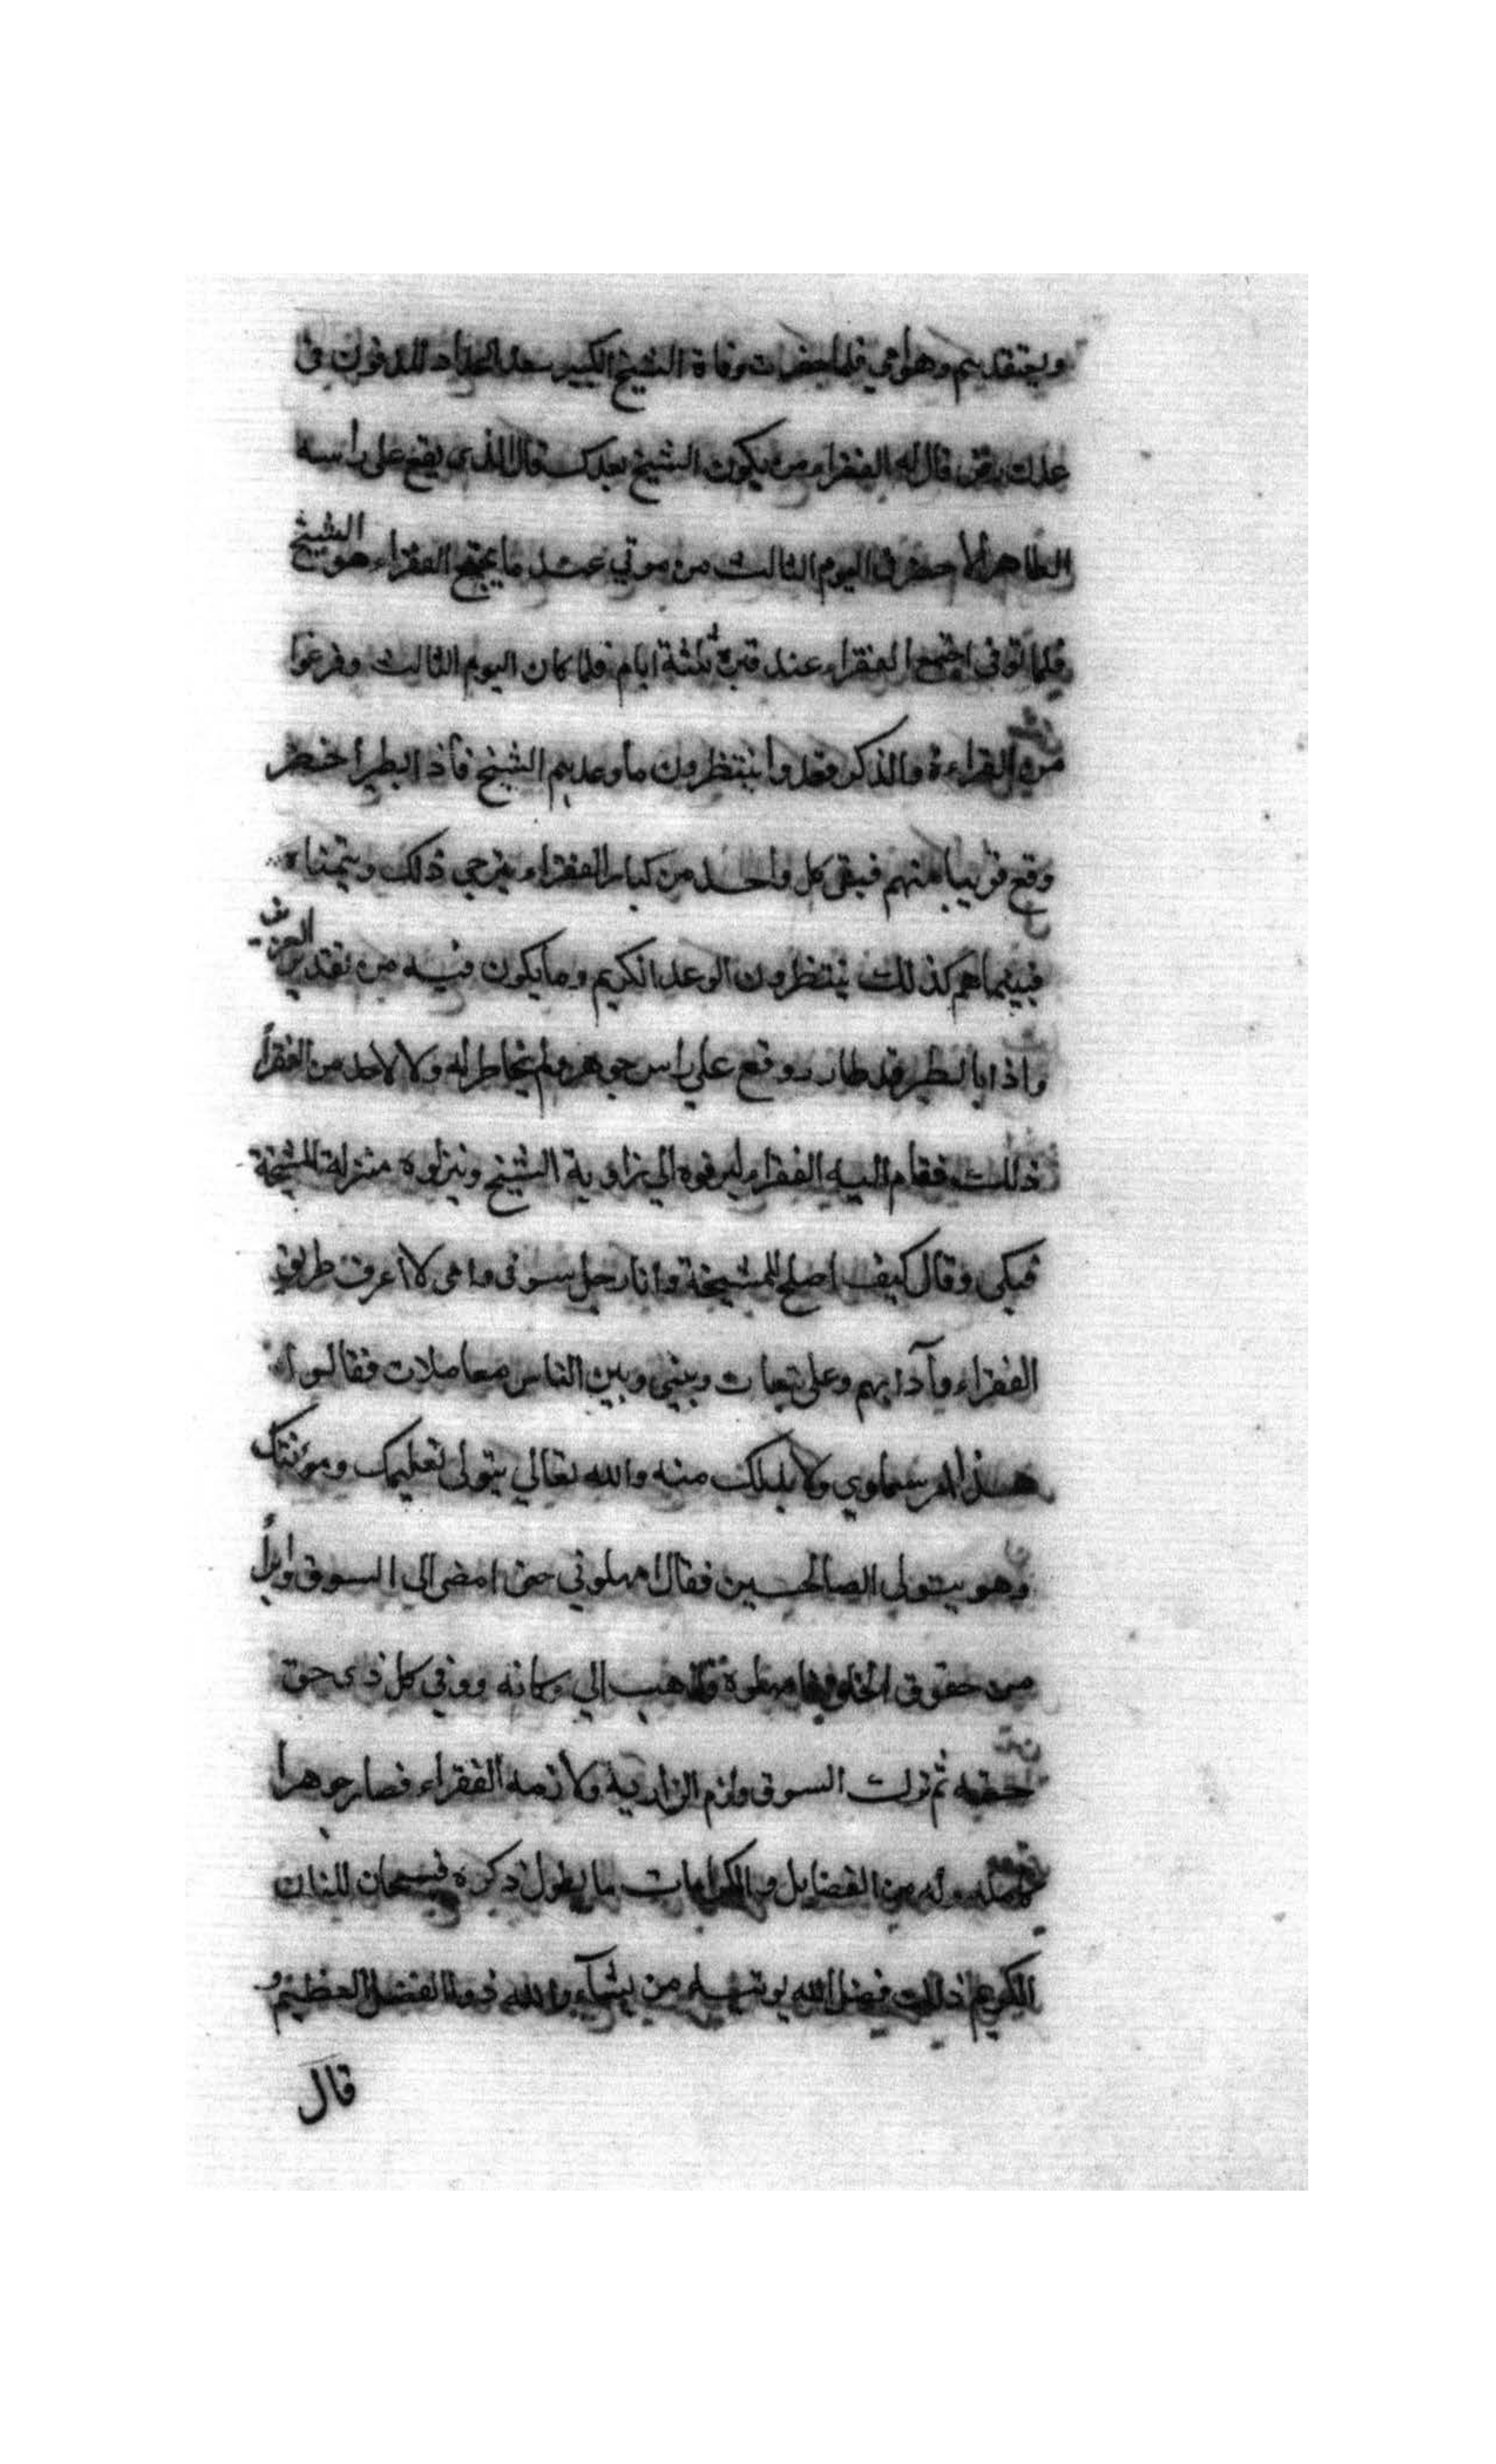 ويعتقدهم وهو أمي فلما حضرت وفاة الشيخ الكبير سعد الحداد المدفون في
عدن قال له الفقراء من يكون الشيخ بعدك قال الذي يقع على راسه
الطاهر الاخضر في اليوم الثالث من موتي عند ما يجتمع الفقراء هو الشيخ
فلما توفي اجتمع الفقراء عند قبره ثلثة ايام فلما كان اليوم الثالث وفرغوا
من القراءة والذكر وقعدوا ينتظرون ما وعدهم الشيخ فاذا بطير اخضر
وقع قريبا منهم فبقي كل واحد من كبار الفقراء يترجي ذلك ويتمناه
فبينما هم كذلك ينتظرون الوعد الكريم وما يكون فيه من تقدير العزيز
واذا بالطير قد طار ووقع علي راس جوهر ولم يخاطر له ولا لاحد من الفقرأ
ذلك فقام اليه الفقراء ليزفوه الي زاوية الشيخ وينزلوه منزلة المشيخة
فبكى وقال كيف اصلح للمشيخة وانا رجل سوقي وامي لا اعرف طريق
الفقراء وآدابهم وعلي تبعات وبيني وبين الناس معاملات فقالوا له
هذا امر سماوي ولا بد لك منه والله تعالي يتولى تعليمك ومؤنتك
وهو يتولى الصالحين فقال امهلوني حتى امضي الي السوق وابرأ
من حقوق الخلق فامهلوه فذهب الي دكانه ووفي كل ذي حق
حقه ثم ترك السوق ولزم الزاوية ولازمه الفقراء فصار جوهرا
كاسمه وله من الفضايل والكرامات ما يطول ذكره فسبحان المنان
الكريم ذلك فضل الله يوتيه من يشآء والله ذو الفضل العظيم
قال